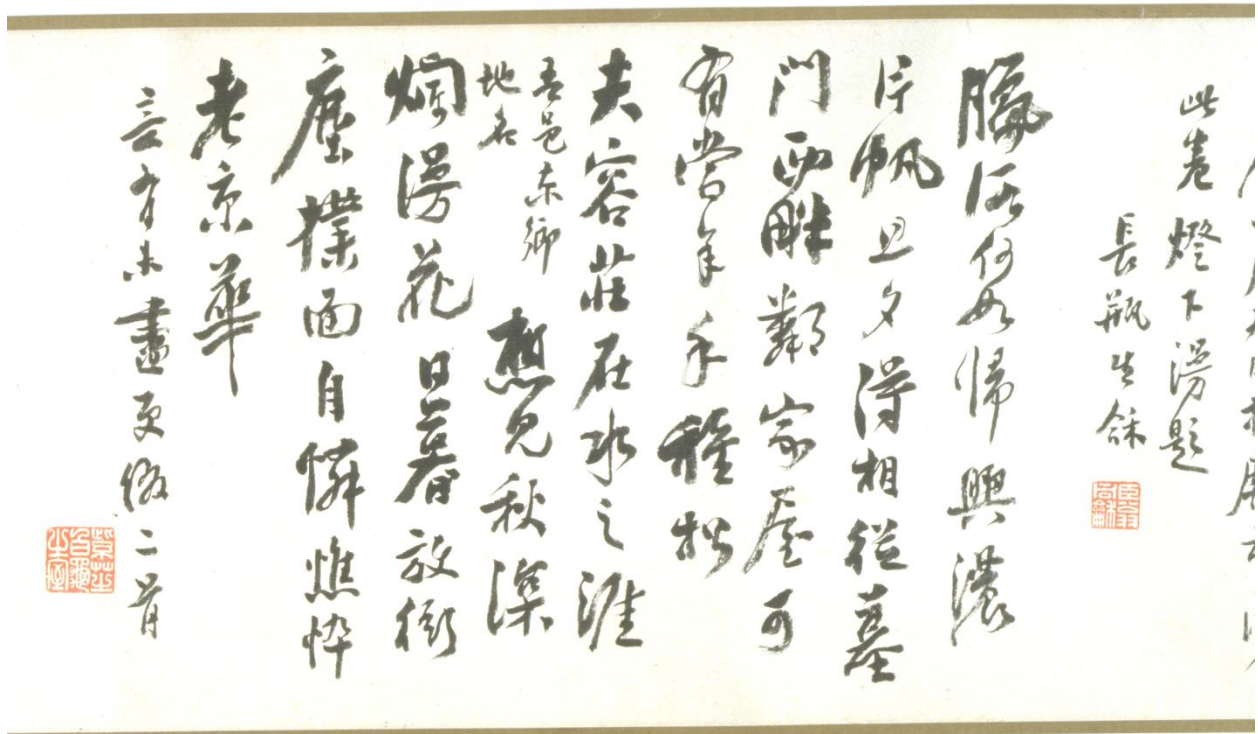 此卷燈下漫題
長瓶生龢
臣翁同龢
臘酒何如歸興濃
片帆旦夕得相從墓
門西畔鄰家屋可
有當年手種松
夫容莊在水之涯
吾邑東鄉
地名
想見秋深
爛漫花日暮放衙
塵撲面自憐憔悴
老京華
意有未盡更綴二首
紫芝白龜之室